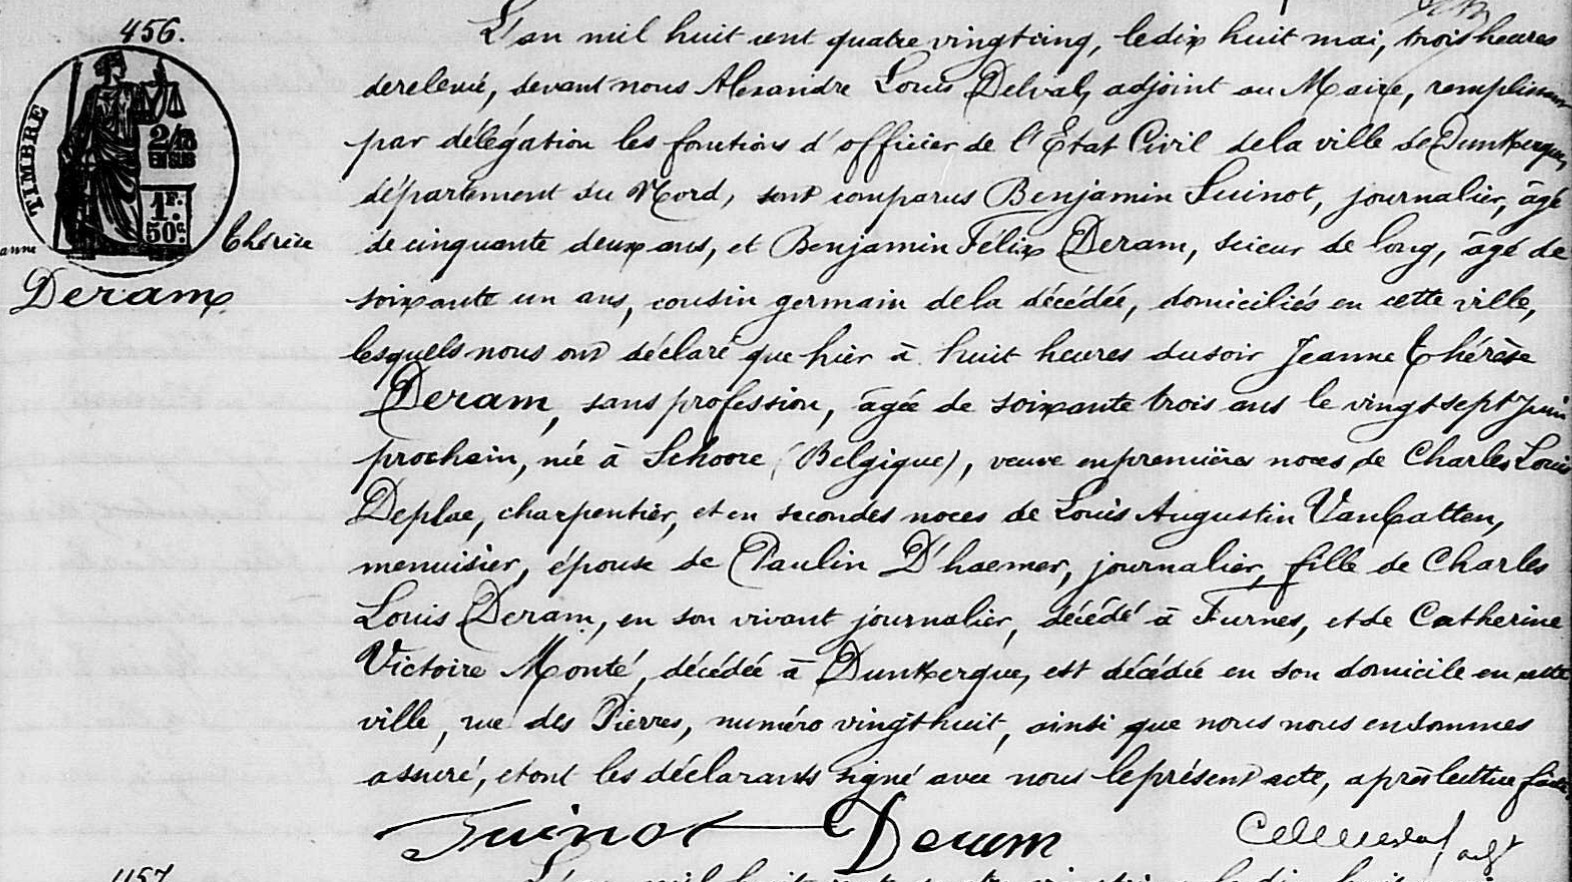 456.
L'an mil huit cent quatre vingt cinq, le dix huit mai, trois heures
TIMBRE
2/10
EN SUS
1F.
50c.
anne Thérèse
Deram
de relevée, devant nous Alexandre Louis Delval, adjoint au Maire, remplissant
par délégation les fonctions d'officier de l'Etat Civil de la ville de Dunkerque,
département du Nord, sont comparus Benjamin Suinot, journalier, âgé
de cinquante deux ans, et Benjamin Félix Deram, scieur de long, âgé de
soixante un ans, cousin germain de la décédée, domiciliés en cette ville,
lesquels nous ont déclaré que hier à huit heures du soir Jeanne Thérèse
Deram, sans profession, âgée de soixante trois ans le vingt sept Juin
prochain, née à Schoore (Belgique), veuve en premières noces de Charles Louis
Deplae, charpentier, et en secondes noces de Louis Augustin VanCatten,
menuisier, épouse de Paulin D'haemer, journalier, fille de Charles
Louis Deram, en son vivant journalier, décédé à Furnes, et de Catherine
Victoire Monté, décédée à Dunkerque, est décédée en son domicile en cette
ville, rue des Pierres, numéro vingt huit, ainsi que nous nous en sommes
assuré, et ont les déclarants signé avec nous le présent acte, après lecture faite.
Suinot Deram adjt
457